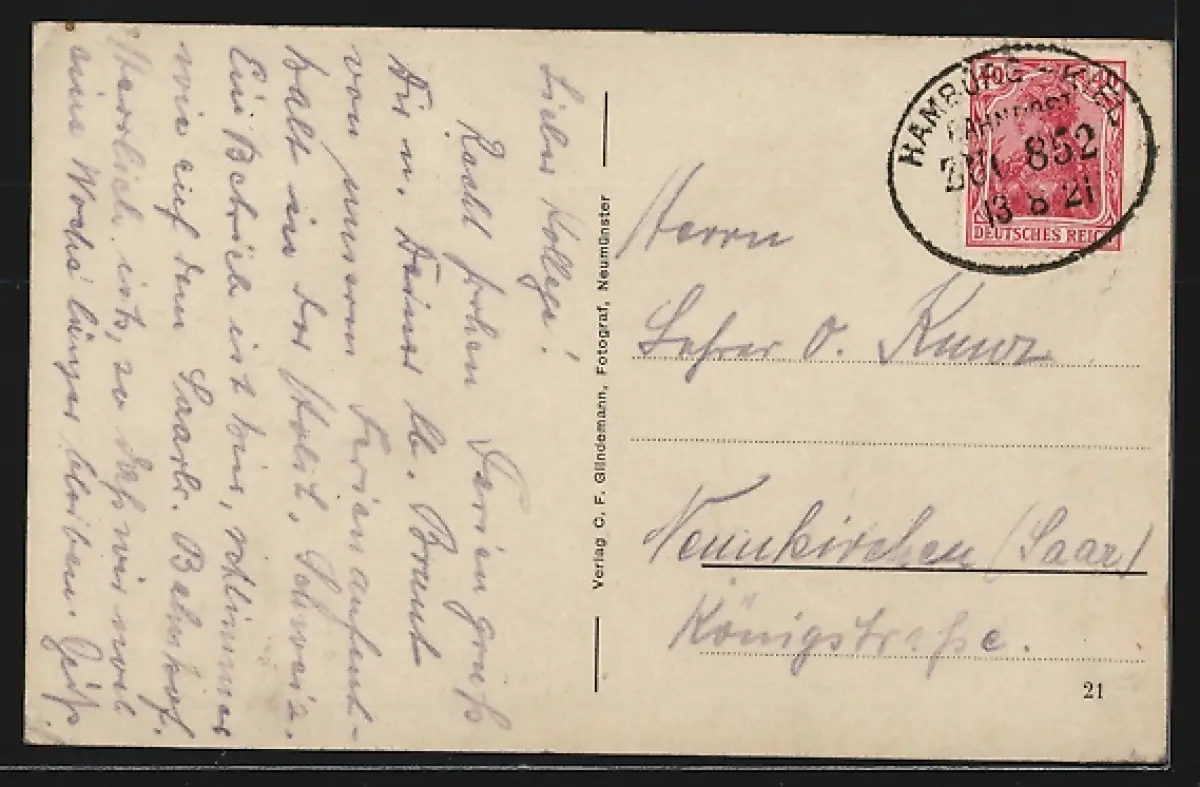 Lieber Kollege!
Recht frohen Feriengruß
Dir u. Deiner lb. Braut
von unserm Ferienaufent-
halt in der Holst. Schweiz.
Ein Betrieb ist hier, schlimmer
wie auf dem Saarbr. Bahnhof.
Herrlich ists, so daß wir noch
eine Woche länger bleiben.
Verlag C. F. Glindemann, Fotograf, Neumünster
HAMBURG - KIEL
BAHNPOST
ZUG 852
13 8 21
10
DEUTSCHES REICH
Herrn
Lehrer O. Kunz
Neunkirchen (Saar)
Königstraße.
21